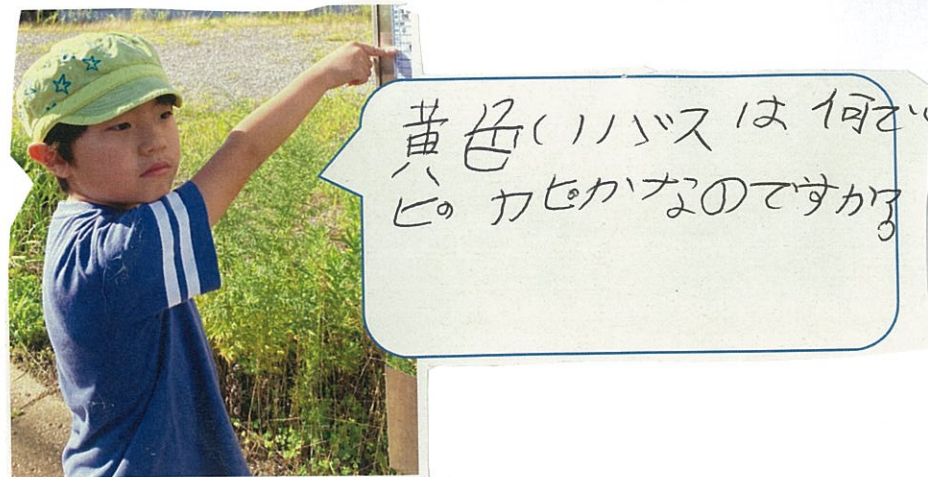 黄色いバスは何で
ピカピカなのですか?